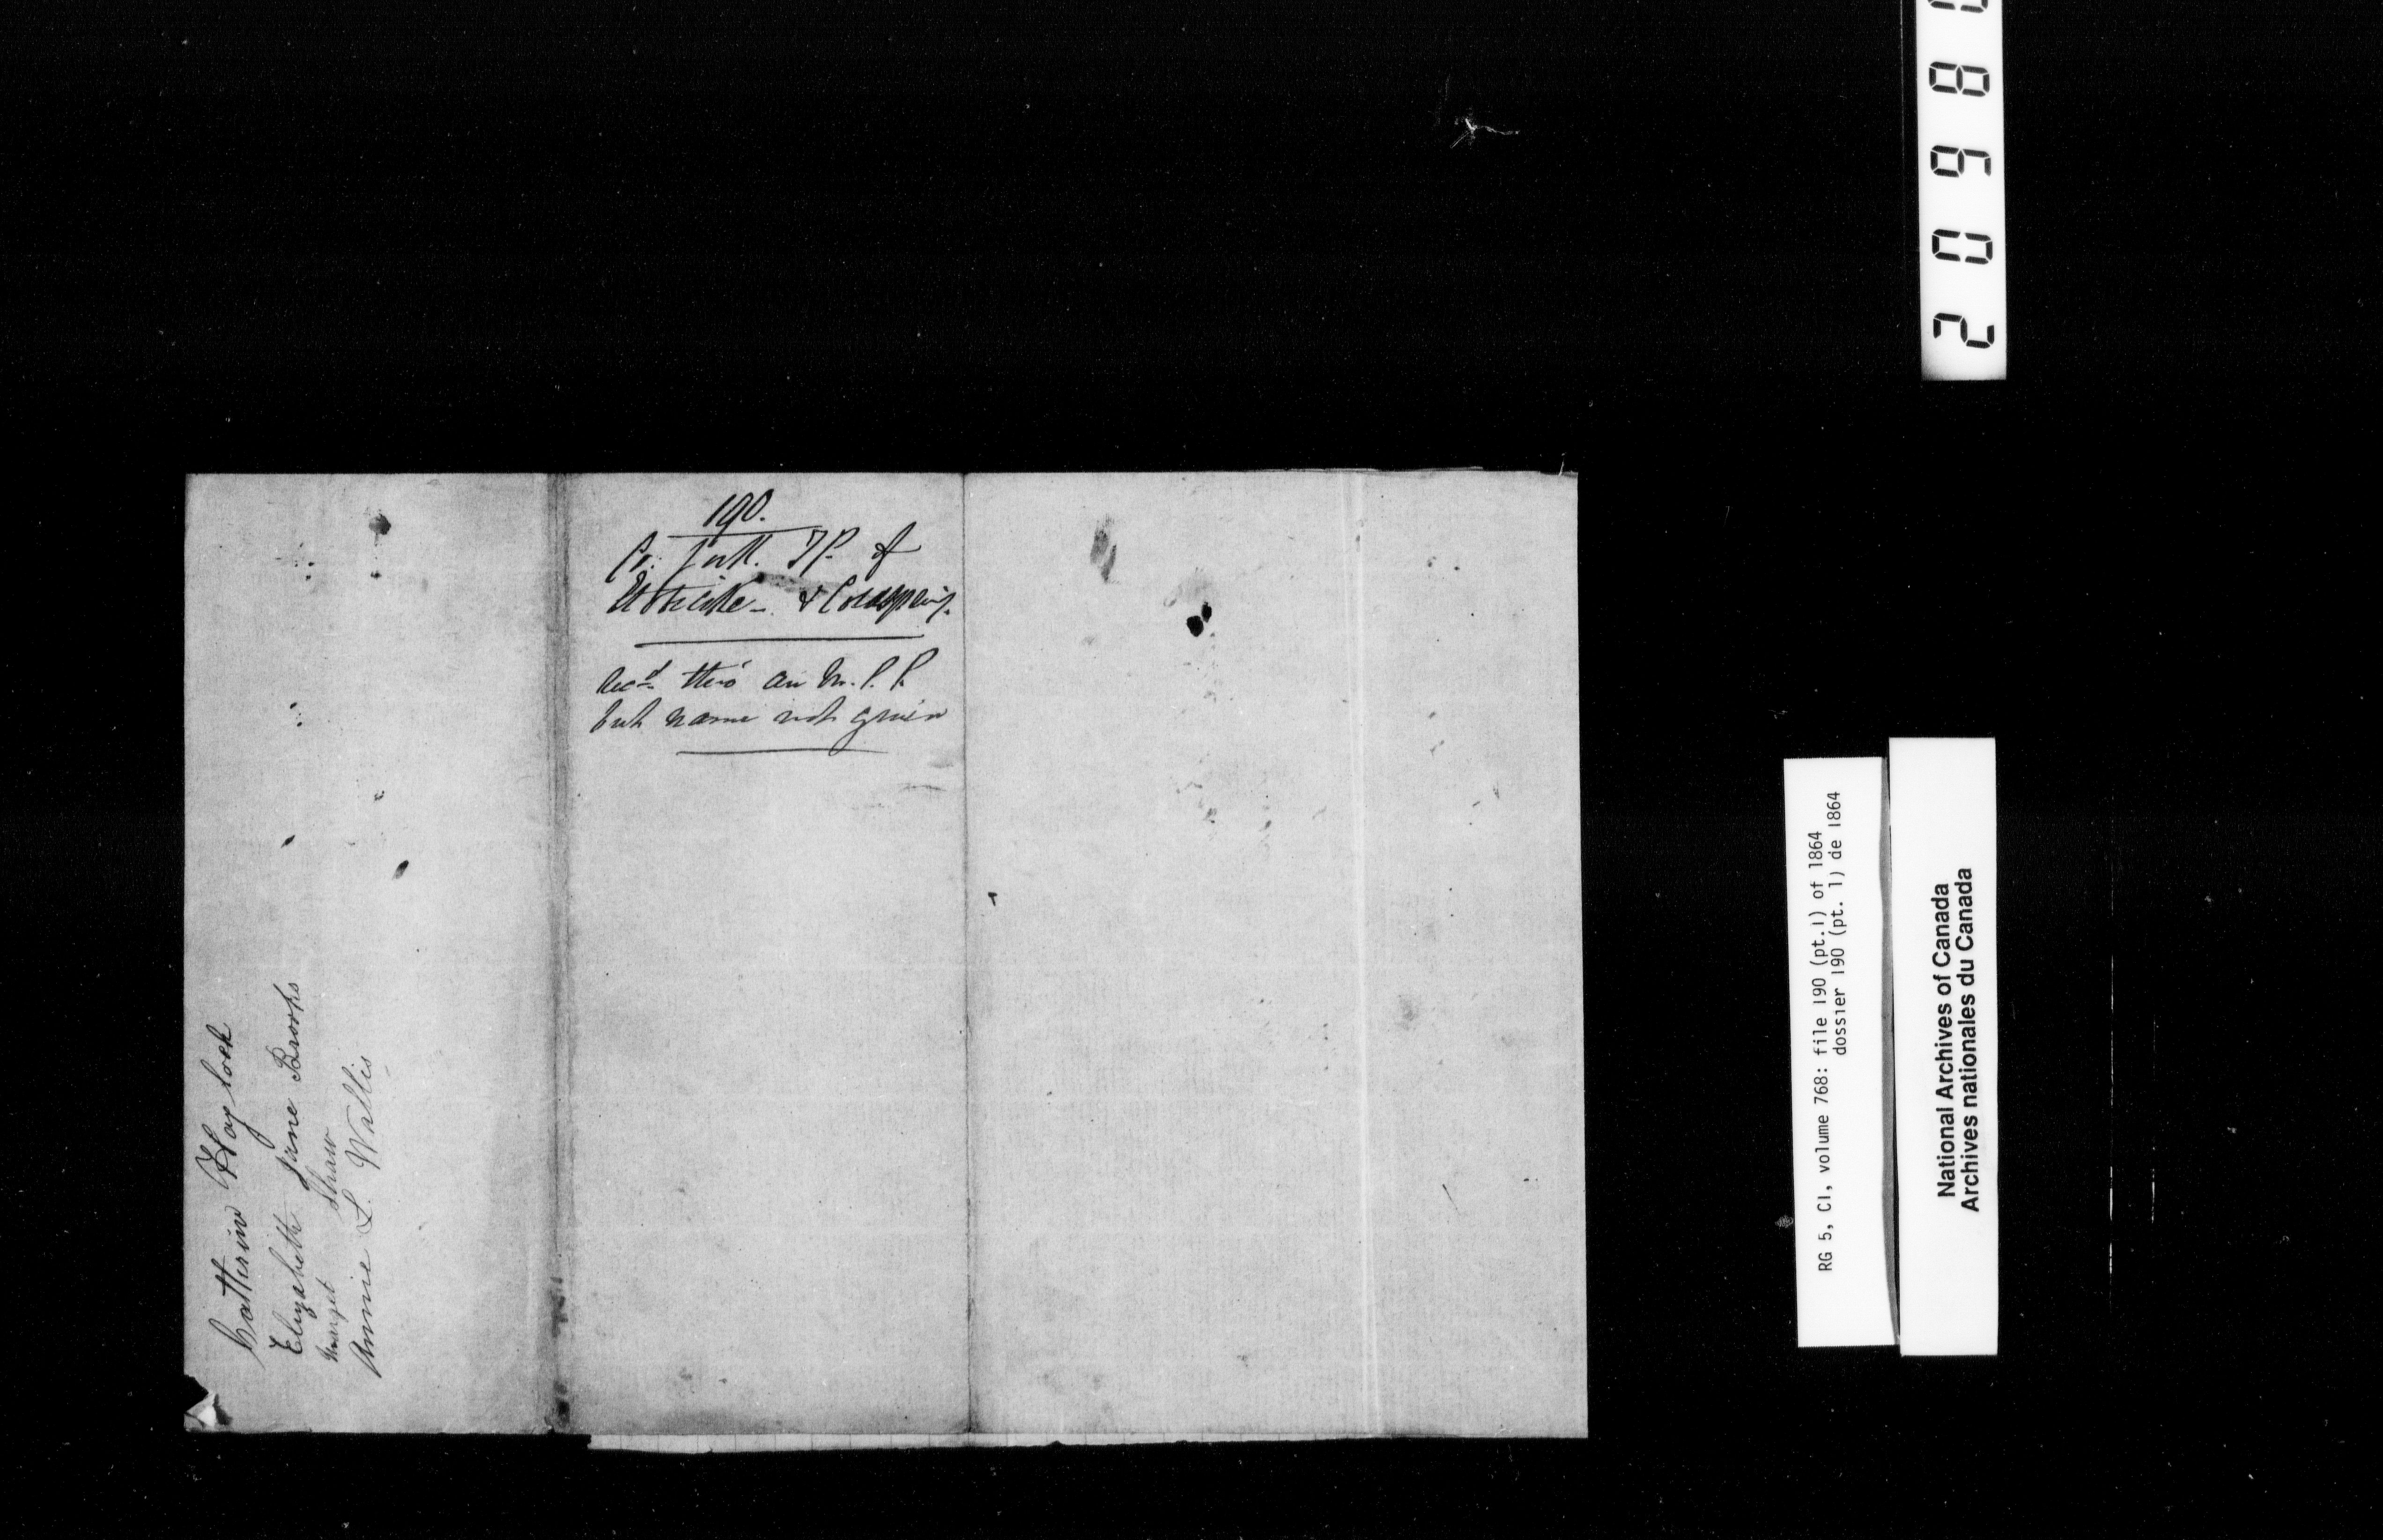 190.
Co. York. TP. of
Etobicoke - & Couxsprings.
Recd. thro' an M.P.P.
but name not given
Catterine Haylock
Elizabeth Jane Brooks
Marget Shaw
Annie L. Wallis
2 0 9 8
RG 5, C1, volume 768: file 190 (pt.1) of 1864
dossier 190 (pt. 1) de 1864
National Archives of Canada
Archives nationales du Canada